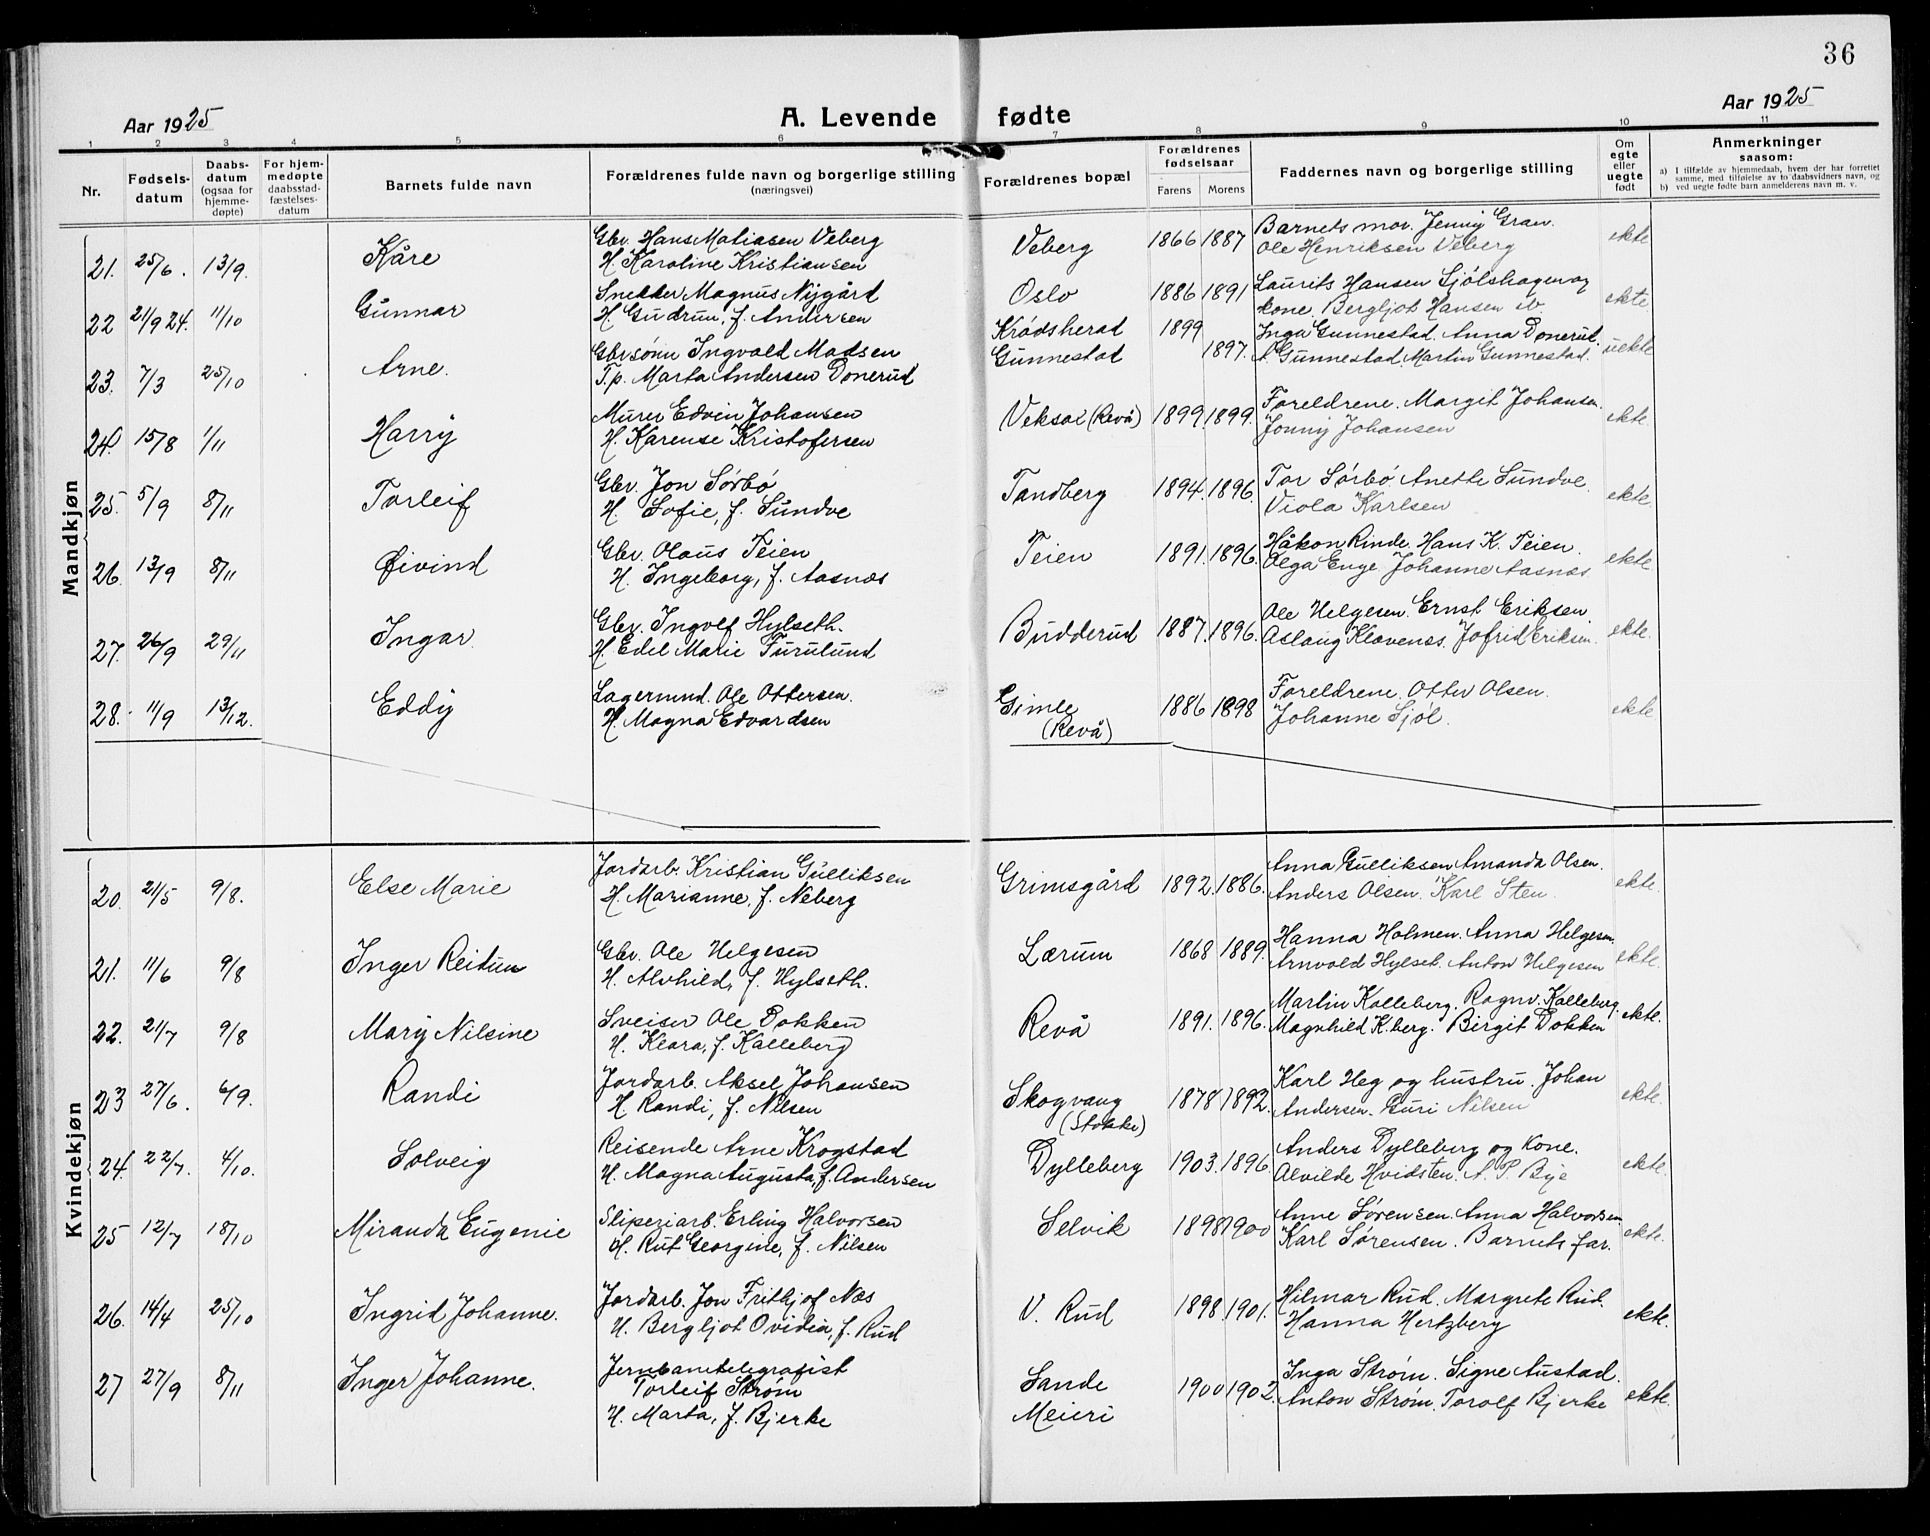 36
Aar 1925
A. Levende fødte
Aar 1925
1 2 3 4 5 6 7 8 9 10 11
Nr.
Fødsels-
datum
Daabs-
datum
(ogsaa for
hjemme-
døpte)
For hjem-
medøpte
daabsstad-
fæstelses-
datum
Barnets fulde navn
Forældrenes fulde navn og borgerlige stilling
(næringsvei)
Forældrenes bopæl
Forældrenes
fødselsaar
Farens Morens
Faddernes navn og borgerlige stilling
Om
egte
eller
uegte
født
Anmerkninger
saasom:
a) I tilfælde av hjemmedaab, hvem der har forrettet
samme, med tilføielse av to daabsvidners navn, og
b) ved uegte fødte barn anmelderens navn m. v.
Mandkjøn
Gbr. Hans Matiasen Veberg Barnets mor. Jenny Gran.
21. 25/6. 13/9. Kåre H. Karoline Kristiansen Veberg 1866 1887 Ole Henriksen Veberg ekte
Snekker Magnus Nygård Laurits Hansen Sjølshagen og
22 21/9 24. 11/10 Gunnar H. Gudrun, f. Andersen Oslo 1886 1891 kone. Bergljot Hansen ib. ekte
Gbrsønn Ingvald Madsen Krødsherad 1899 Inga Gunnestad. Anna Donerud.
23. 7/3 25/10 Arne. T.p. Marta Andersen Donerud Gunnestad 1897. A. Gunnestad. Martin Gunnestad. uekte
Murer Edvin Johansen Foreldrene. Margit Johansen.
24. 15/8 1/11 Harry H. Karense Kristofersen Veksal (Revå) 1899. 1899. Jonny Johansen ekte.
Gbr. Jon Sørbø Tor Sørbø. Anette Sundve.
25. 5/9 8/11 Torleif H. Sofie, f. Sundve Tandberg 1894. 1896. Viola Karlsen ekte.
Gbr. Olaus Teien Håkon Rinde. Hans K. Teien.
26. 13/9 8/11 Øivind H. Ingeborg, f. Aasnæs Teien 1891. 1896. Olga Enge Johanne Aasnæs ekte.
Gbr. Ingolf Hylseth. Ole Helgesen. Ernst Eriksen.
27. 26/9 29/11 Ingar. H. Edel Marie Furulund Budderud 1887. 1896. Aslaug Klavenes. Jofrid Eriksen. ekte.
Lagermnd. Ole Ottersen. Foreldrene. Otter Olsen.
28. 11/9 13/12. Eddy H. Magna Edvardsen Gimle 1886 1898 Johanne Sjøl. ekte
(Revå)
Kvindekjøn
Jordarb. Kristian Gulliksen Anna Gulliksen Amanda Olsen.
20. 21/5 9/8. Else Marie H. Marianne, f. Neberg Grimsgård 1892. 1886. Anders Olsen. Karl Sten. ekte.
Gbr. Ole Helgesen Hanna Holmen. Anna Helgesen.
21. 11/6 9/8 Inger Reidun H. Alvhild, f. Hylseth. Lærum 1868 1889. Arnvald Hylset. Anton Helgesen ekte.
Sveiser Ole Dokken Martin Kalleberg. Ragnv. Kalleberg.
22. 21/7 9/8 Mary Nilsine H. Klara, f. Kalleberg Revå 1891. 1896. Magnhild K.berg. Birgit Dokken ekte.
Jordarb. Aksel Johansen Karl Heg og hustru. Johan
23 27/6. 6/9. Randi H. Randi, f. Nilsen Skogvang 1878 1892. Andersen. Guri Nilsen ekte.
(Stokke)
Reisende Arne Krogstad Anders Dylleberg og kone.
24. 22/7. 4/10. Solveig H. Magna Augusta, f. Andersen Dylleberg 1903. 1896. Alvilde Hvidsten. A. P. Bye ekte.
Sliperiarb. Erling Halvorsen Anne Sørensen. Anna Halvorsen
25 12/7 18/10 Miranda Eugenie H. Rut Georgine, f. Nilsen Selvik 1898 1900 Karl Sørensen. Barnets far. ekte.
Jordarb. Jon Frithjof Næs Hilmar Rud. Margrete Rud.
26. 14/4 25/10 Ingrid Johanne. H. Bergljot Ovidia, f. Rud V. Rud 1898 1901. Hanna Hertzberg ekte.
Jernbanetelegrafist Inga Strøm. Signe Austad.
27 27/9 8/11 Inger Johanne. Torleif Strøm Sande 1900 1902. Anton Strøm. Torolf Bjerke ekte.
H. Marta, f. Bjerke Meieri